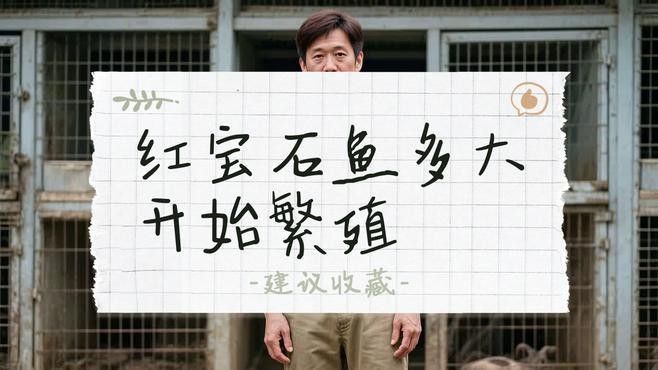 红宝石鱼多大
开始繁殖
-建议收藏-